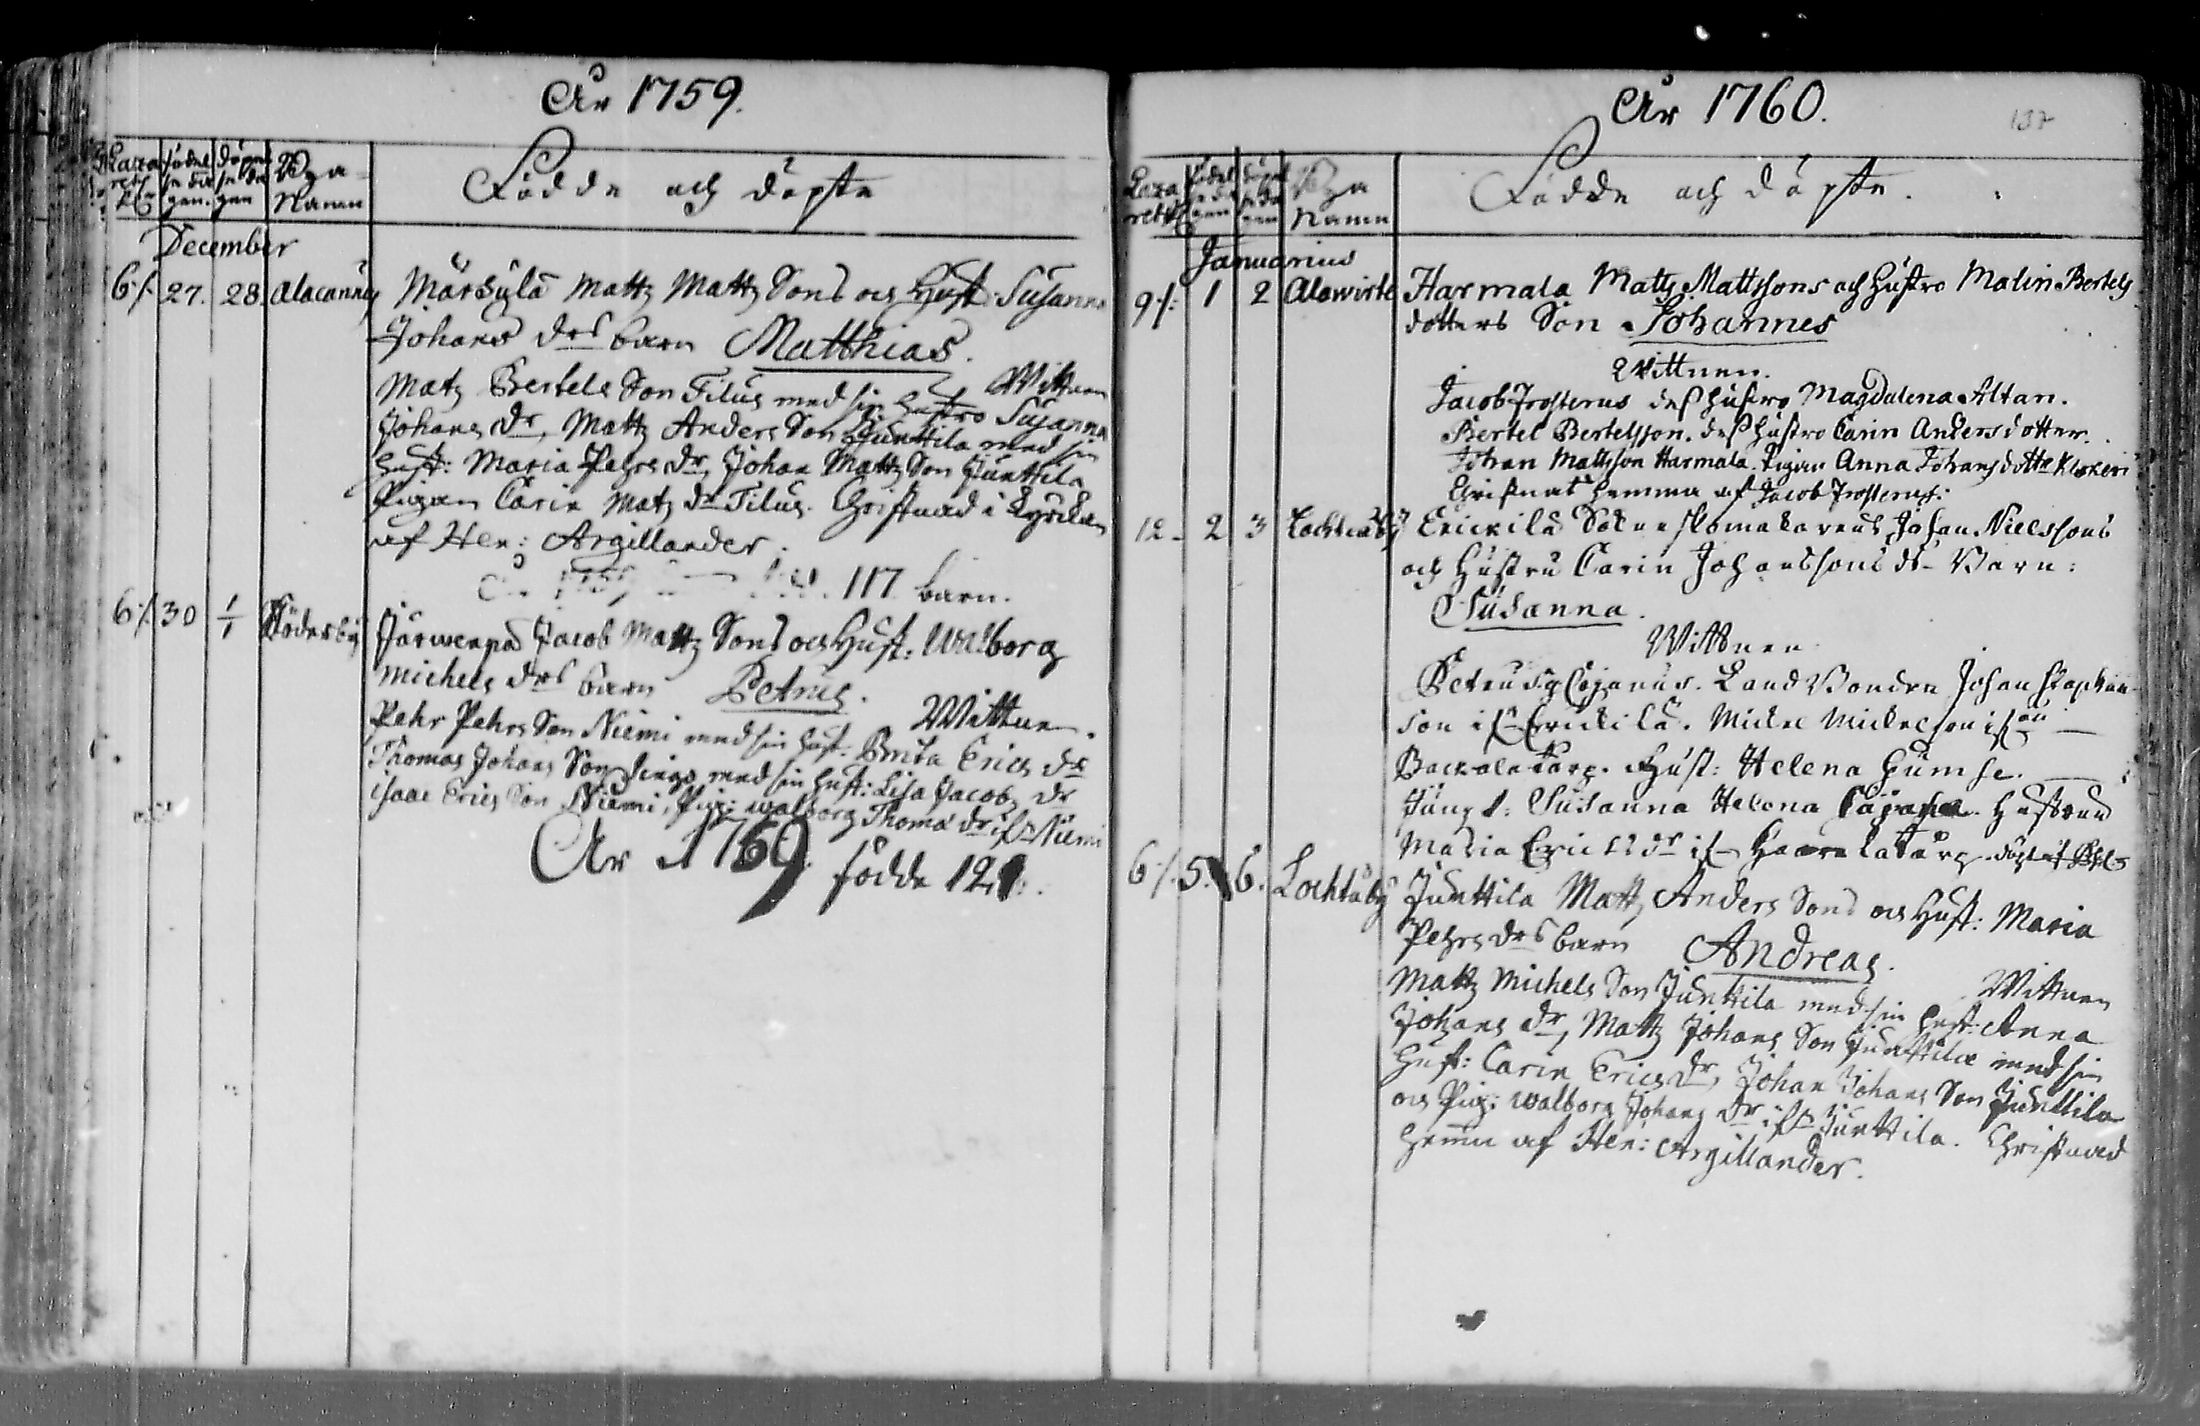 År 1759.
födel se da gen. döpel se da gen By a Namn Födde och döpte
December
6./. 27. 28. Alacannus Märsylä Matts Matts Sons och Hust: Susanna
Johans drs barn Matthias.
Wittnen
Matz Bertels Son Filus med sin Hustro Susanna
Johans dr, Matts Anders Son Junttila med sin
Hust: Maria Pehrs dr, Johan Matts Son Junttila
Pigan Carin Matz dr Filus. Christnad i Kyrckan
af Hen: Argillander.
117 barn.
6./. 30 1/1 Söderby Järwenpää Jacob Matts Sons och Hust: Walborg
Michels drs barn Petrus.
Wittnen.
Pehr Pehrs Son Niemi med sin Hust: Brita Erics dr
Thomas Johans Son med sin Hust: Lisa Jacobs dr
Isaac Erics Son Niemi, Pig: Walborg Thoma dr ifr. Niemi
År 1759. födde 121.
År 1760.
137
födel se da gen döpel se da gen By a Namn Födde och döpte.
Januarius
9./. 1 2 Alawirte Harmala Matts Mattssons och Hustro Malin Bertels
dotters Son Johannes
Wittnen.
Jacob Prosterus dess hustro Magdalena Altan.
Bertel Bertelsson. dess hustro Carin Andersdotter.
Johan Mattsson Harmala. Pigan Anna Johansdottr Klockeri
Christnat hemma af Jacob Prosterus.
12 - 2 3 Lochteåby Erickilä Sockneskomakarens Johan Nielssons
och Hustru Carin Johanssons dr Barn:
Susanna.
Wittnen
Petrus Cajanus. Landbonden Johan Staphan
son ifr Erickilä. Mickel Mickelson ifrån
Backala torp. Hust: Helena Gumse.
Jungf: Susanna Helena Cajana. Hustrun
Maria Ericsdr ifr torp.
6./. 5. 6. Lochtåby Junttila Matts Anders Sons och Hust: Maria
Pehrs drs barn Andreas.
Wittnen
Matts Michels Son Junttila med sin Hust: Anna
Johans dr, Matts Johans Son Junttila med sin
Hust: Carin Erics dr, Johan Johans Son Junttila
och Pig: Walborg Johans dr ifr Junttila. Christnad
hemma af Hen: Argillander.